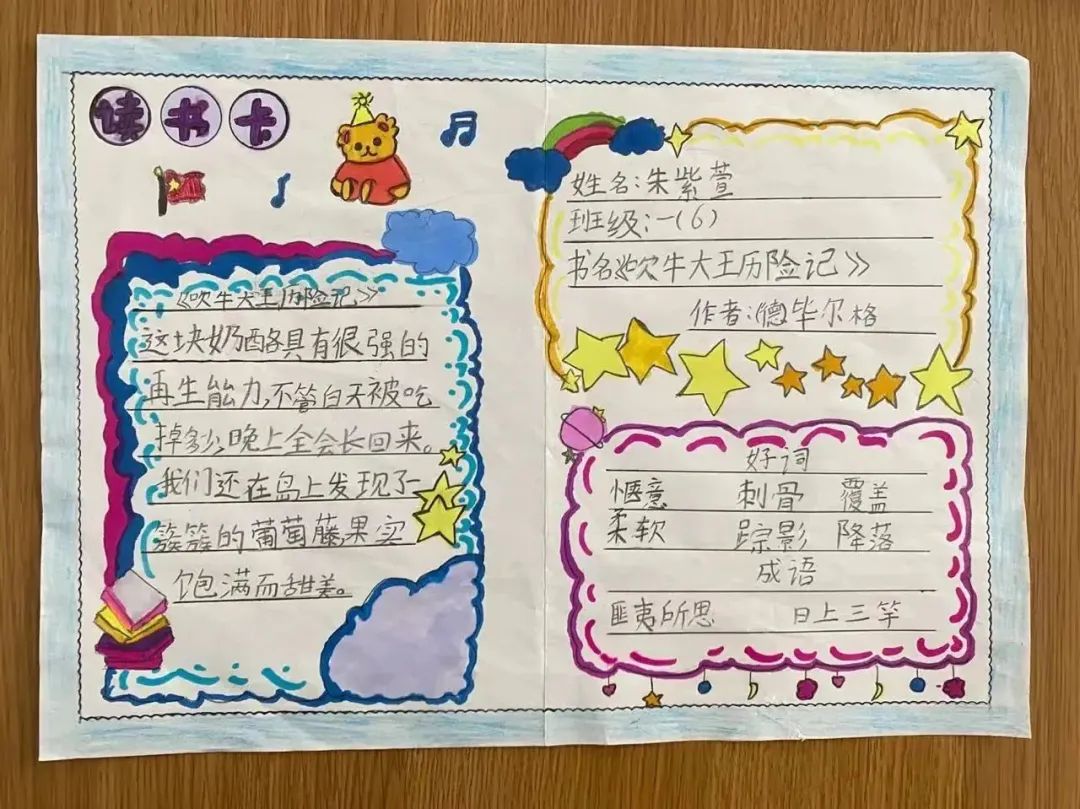 读书卡
《吹牛大王历险记》
这块奶酪具有很强的
再生能力,不管白天被吃
掉多少,晚上全会长回来。
我们还在岛上发现了一
簇簇的葡萄藤,果实
饱满而甜美。
姓名:朱紫萱
班级:一(6)
书名《吹牛大王历险记》
作者:(德毕尔格
好词
惬意 刺骨 覆盖
柔软 踪影 降落
成语
匪夷所思 日上三竿